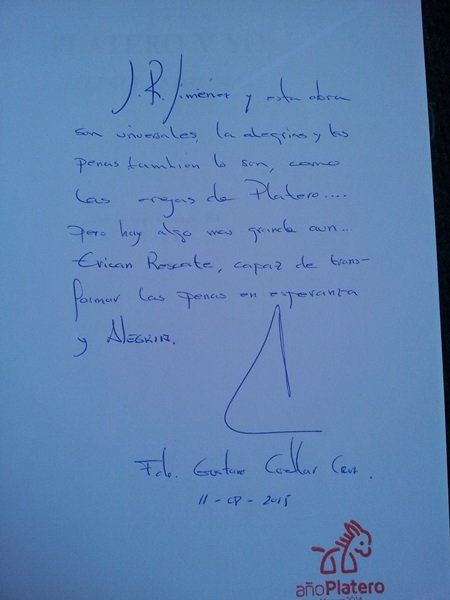 J. R. Jimenez y esta obra
son universales, la alegrias y las
penas tambien lo son, como
las orejas de Platero....
Pero hay algo mas grande aun...
Erican Rescate, capaz de trans-
formar las penas en esperanza
y ALEGRIA.
Fdo. Gustavo Cuellar Cruz.
11-08-2015
añoPlatero